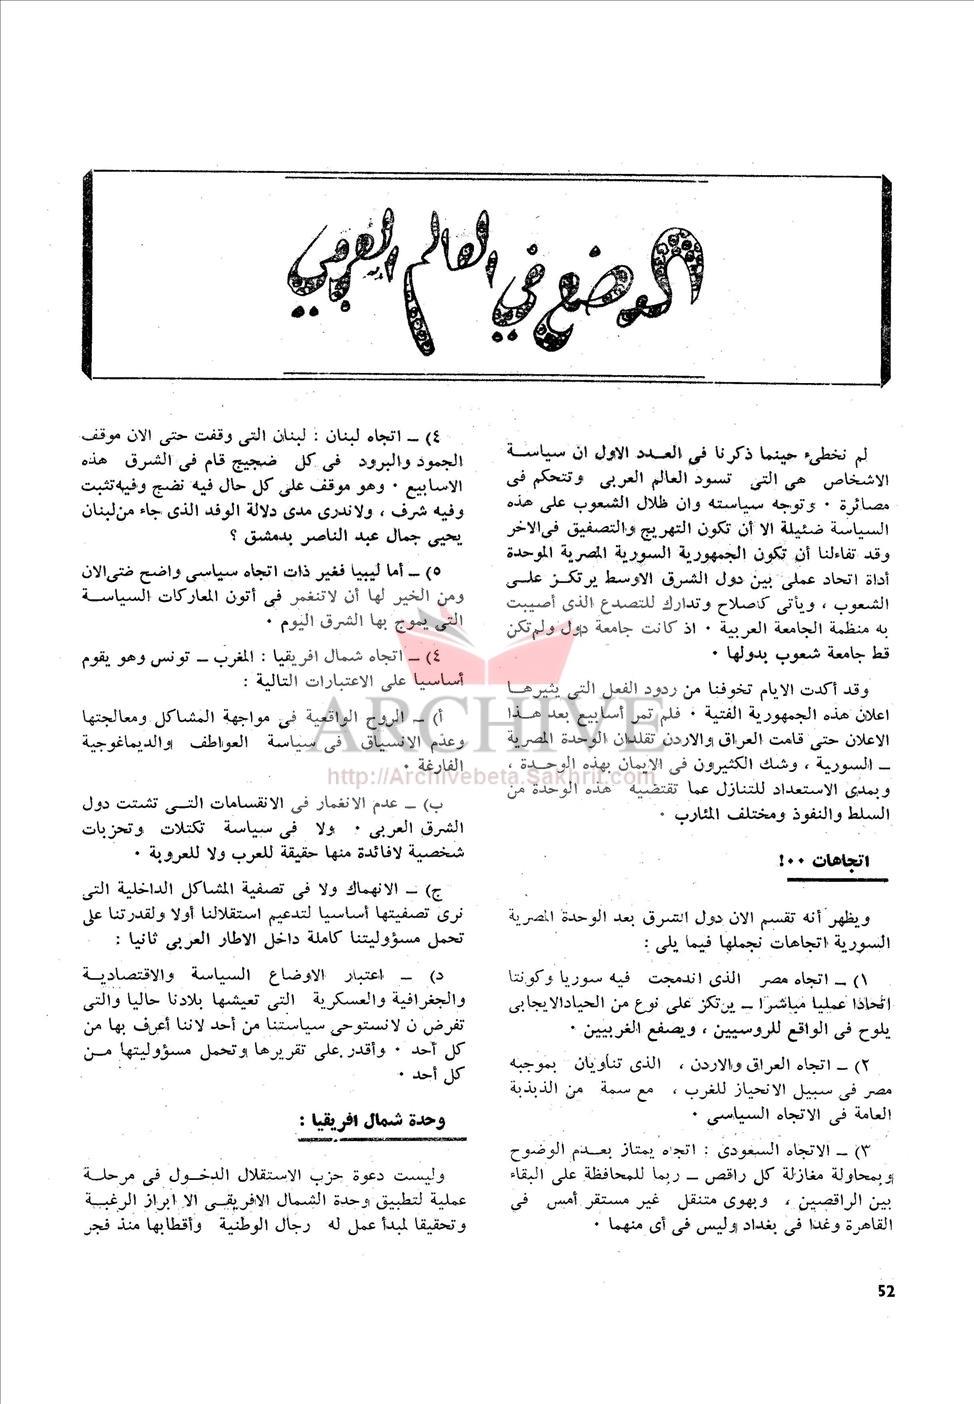 الوضع في العالم العربي
لم نخطىء حينما ذكرنا فى العدد الاول ان سياسة
الاشخاص هى التى تسود العالم العربى وتتحكم فى
مصائرة ٠ وتوجه سياسته وان ظلال الشعوب على هذه
السياسة ضئيلة الا أن تكون التهريج والتصفيق فى الاخر
وقد تفاءلنا أن تكون الجمهورية السورية المصرية الموحدة
أداة اتحاد عملى بين دول الشرق الاوسط يرتكز على
الشعوب ، ويأتى كاصلاح وتدارك للتصدع الذى أصيبت
به منظمة الجامعة العربية ٠ اذ كانت جامعة دول ولم تكن
قط جامعة شعوب بدولها ٠
وقد أكدت الايام تخوفنا من ردود الفعل التى يثيرها
اعلان هذه الجمهورية الفتية ٠ فلم تمر أسابيع بعد هذا
الاعلان حتى قامت العراق والاردن تقلدان الوحدة المصرية
ـ السورية ، وشك الكثيرون فى الايمان بهذه الوحدة ،
وبمدى الاستعداد للتنازل عما تقتضيه هذه الوحدة من
السلط والنفوذ ومختلف المئارب ٠
اتجاهات ٠٠!
ويظهر أنه تقسم الان دول الشرق بعد الوحدة المصرية
السورية اتجاهات نجملها فيما يلى :
١) ـ اتجاه مصر الذى اندمجت فيه سوريا وكونتا
اتحادا عمليا مباشرا ـ يرتكز على نوع من الحياد الايجابى
يلوح فى الواقع للروسيين ، ويصفع الغربيين ٠
٢) ـ اتجاه العراق والاردن ، الذى تناويان بموجبه
مصر فى سبيل الانحياز للغرب ، مع سمة من الذبذبة
العامة فى الاتجاه السياسى ٠
٣) ـ الاتجاه السعودى : اتجاه يمتاز بعدم الوضوح
وبمحاولة مغازلة كل راقص ـ ربما للمحافظة على البقاء
بين الراقصين ، وبهوى متنقل غير مستقر أمس فى
القاهرة وغدا فى بغداد وليس فى أى منهما ٠
٤) ـ اتجاه لبنان : لبنان التى وقفت حتى الان موقف
الجمود والبرود فى كل ضجيج قام فى الشرق هذه
الاسابيع ٠ وهو موقف على كل حال فيه نضج وفيه تثبت
وفيه شرف ، ولا ندرى مدى دلالة الوفد الذى جاء من لبنان
يحيى جمال عبد الناصر بدمشق ؟
٥) ـ أما ليبيا فغير ذات اتجاه سياسى واضح فتى الان
ومن الخير لها أن لا تنغمر فى أتون المعاركات السياسة
التى يموج بها الشرق اليوم ٠
٤) ـ اتجاه شمال افريقيا : المغرب ـ تونس وهو يقوم
أساسيا على الاعتبارات التالية :
أ) ـ الروح الواقعية فى مواجهة المشاكل ومعالجتها
وعدم الانسياق فى سياسة العواطف والديماغوجية
الفارغة ٠
ب) ـ عدم الانغمار فى الانقسامات التى تشتت دول
الشرق العربى ٠ ولا فى سياسة تكتلات وتحزبات
شخصية لا فائدة منها حقيقة للعرب ولا للعروبة ٠
ج) ـ الانهماك ولا فى تصفية المشاكل الداخلية التى
نرى تصفيتها أساسيا لتدعيم استقلالنا أولا ولقدرتنا على
تحمل مسؤوليتنا كاملة داخل الاطار العربى ثانيا :
د) ـ اعتبار الاوضاع السياسة والاقتصادية
والجغرافية والعسكرية التى تعيشها بلادنا حاليا والتى
تفرض ن لا نستوحى سياستنا من أحد لاننا أعرف بها من
كل أحد ٠ وأقدر على تقريرها وتحمل مسؤوليتها من
كل أحد ٠
وحدة شمال افريقيا :
وليست دعوة حزب الاستقلال الدخول فى مرحلة
عملية لتطبيق وحدة الشمال الافريقى الا ابراز الرغبة
وتحقيقا لمبدأ عمل له رجال الوطنية وأقطابها منذ فجر
52
ARCHIVE
http://Archivebeta.Sakhrit.com